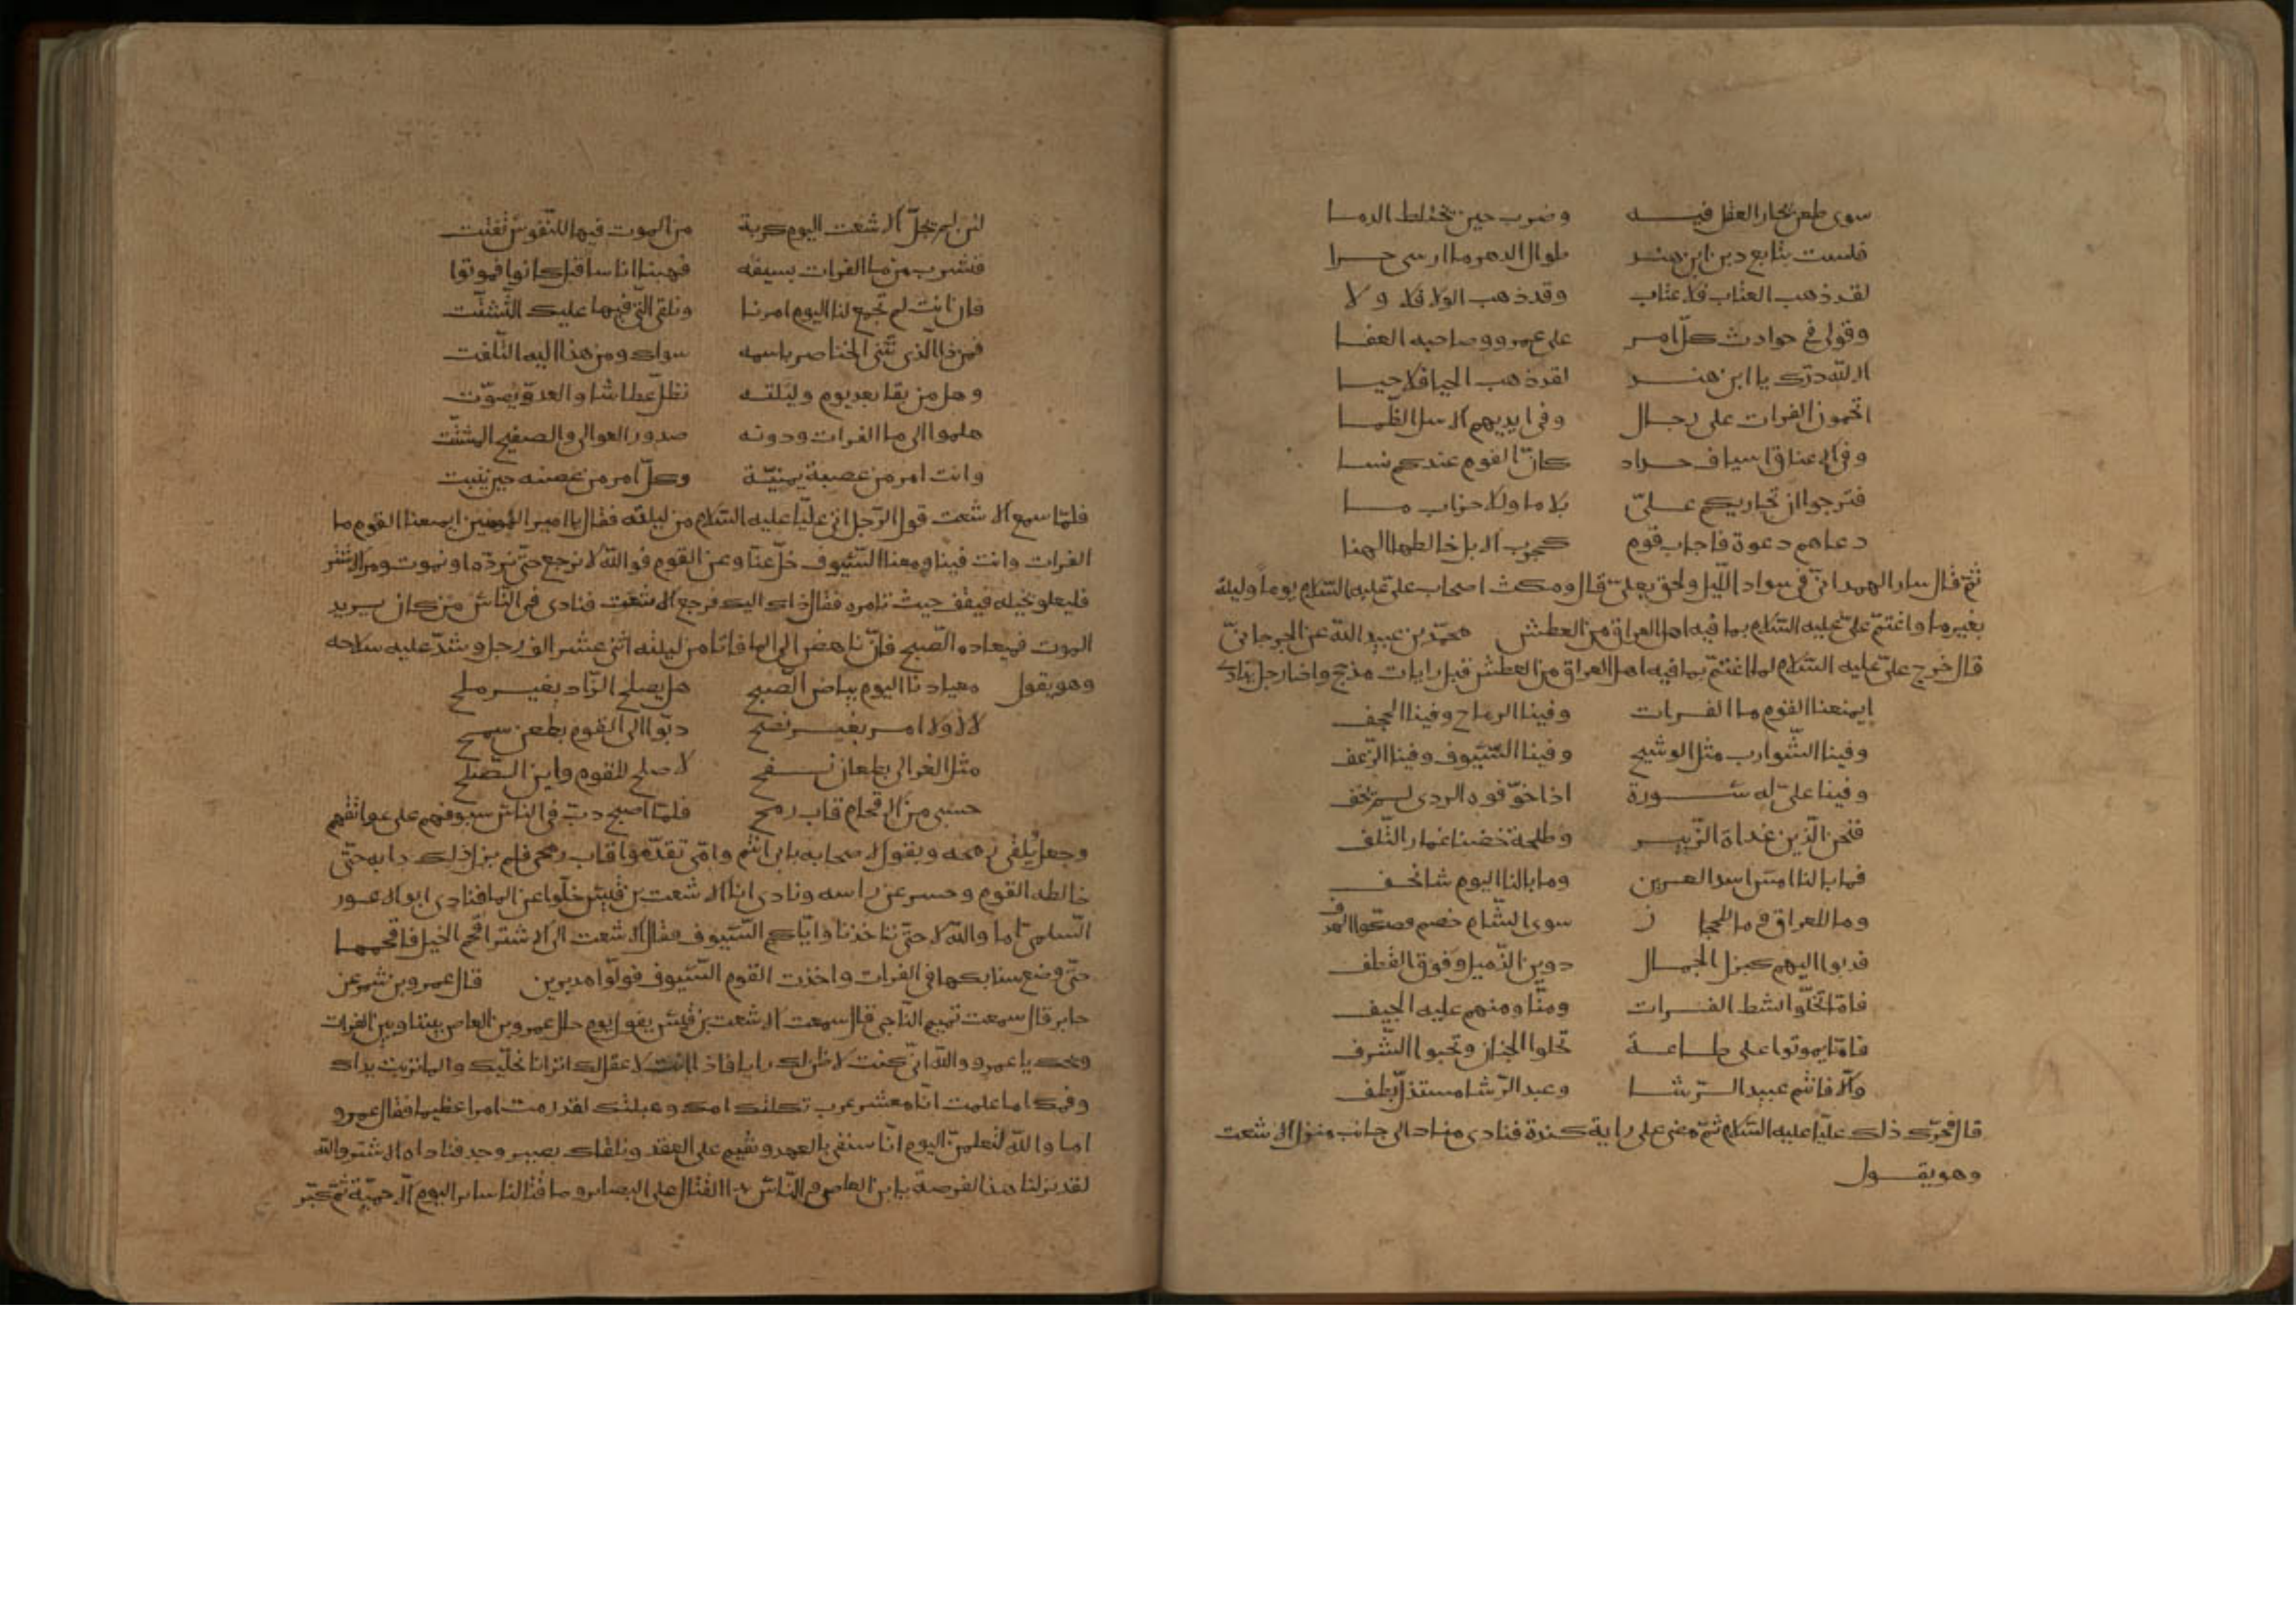 سوى طعن يحار العقل فيه وضرب حين يختلط الدما
فلست بتابع دين ابن هند طوال الدهر ما ارسى حرا
لقد ذهب العتاب فلا عتاب وقد ذهب الولا فلا ولا
وقولي في حوادث كل امر على عمرو وصاحبه العفا
الا لله درك يا ابن هند لقد ذهب الحيا فلا حيا
اتحمون الفرات على رجال وفي ايديهم الاسل الظما
وفي الاعناق اسياف حداد كان القوم عندكم نسا
فترجوا ان يجاوركم علي بلا ما وللاحزاب ما
دعاهم دعوة فاجاب قوم كجرب الابل خالطها الهنا
ثم قال سار الهمداني في سواد الليل ولحق بعلي قال ومكث اصحاب علي عليه السلام يوما وليلة
بغير ما واغتم علي عليه السلام بما فيه اهل العراق من العطش محمد بن عبيد الله عن الجرجاني
قال خرج علي عليه السلام لما اغتم بما فيه اهل العراق من العطش قبل رايات مذحج واذا رجل ينادي
ايمنعنا القوم ما الفرات وفينا الرماح وفينا الحجف
وفينا الشوارب مثل الوشيج وفينا السيوف وفينا الزعف
وفينا علي له سورة اذا خوفوه الردى لم يخف
فنحن الذين غداة الزبير وطلحة خضنا غمار التلف
فما بالنا امس اسد العرين وما بالنا اليوم شا نجف
وما للعراق وما للحجاز سوى الشام خصم فصكوا الهدف
فدبوا اليهم كبزل الجمال دوين الذميل وفوق القطف
فاما تخلوا بشط الفرات ومنا ومنهم عليه الجيف
فاما يموتوا على طاعة تحلوا الجنان وتحبوا الشرف
والا فانتم عبيد الرشا وعبد الرشا مستذل نطف
قال فحرك ذلك عليا عليه السلام ثم مضى على راية كندة فنادى مناد الى جانب منزل الاشعث
وهو يقول
لئن لم يجل الاشعث اليوم كربة من الموت فيها للنفوس تفتت
فنشرب من ما الفرات بسيفه فهبنا اناسا قبل كانوا فموتوا
فان انت لم تجمع لنا اليوم امرنا وتلق التي فيها عليك التشتت
فمن ذا الذي تثنى الخناصر باسمه سواك ومن هذا اليه التلفت
وهل من بقا بعد يوم وليلة نظل عطاشا والعدو يصوت
هلموا الى ما الفرات ودونه صدور العوالي والصفيح المشتت
وانت امرو من عصبة يمنية وكل امر من غصنه حين ينبت
فلما سمع الاشعث قول الرجل اتى عليا عليه السلام من ليلته فقال يا امير المومنين ايمنعنا القوم ما
الفرات وانت فينا ومعنا السيوف خل عنا وعن القوم فوالله لا نرجع حتى نرده او نموت ومر الاشتر
فليعلو بخيله فيقف حيث تامره فقال ذاك اليك فرجع الاشعث فنادى في الناس من كان يريد
الموت فميعاده الصبح فاني ناهض الى الما فاتاه من ليلته اثنى عشر الف رجل وشد عليه سلاحه
وهو يقول ميعادنا اليوم بياض الصبح هل يصلح الزاد بغير ملح
لا لا ولا امر بغير نصح دبوا الى القوم بطعن سمح
مثل العزالي بطعان نفح لا صلح للقوم واين الصلح
حسبي من الاقحام قاب رمح فلما اصبح دب في الناس سيوفهم على عواتقهم
وجعل يلقي رمحه ويقول لاصحابه بابي انتم وامي تقدموا قاب رمحي فلم يزل ذلك دابه حتى
خالطه القوم وحسر عن راسه ونادى انا الاشعث بن قيس خلوا عن الما فنادى ابو الاعور
السلمي اما والله لا حتى تاخذنا واياكم السيوف فقال الاشعث الى الاشتر اقحم الخيل فاقحمها
حتى وضع سنابكها في الفرات واخذت القوم السيوف فولوا مدبرين قال عمرو بن شمر عن
جابر قال سمعت تميم الناجي قال سمعت الاشعث بن قيس يقول يوم حال عمرو بن العاص بيننا وبين الفرات
ويحك يا عمرو والله اني كنت لاظن لك رايا فاذا انت لا عقل لك اترانا نخليك والما تربت يداك
وفمك اما علمت انا معشر عرب ثكلتك امك وهبلتك لقد رمت امرا عظيما فقال عمرو
اما والله لتعلمن اليوم انا سنفي بالعهد ونقيم على العقد ونلقاك بصبر وجد فناداه الاشتر والله
لقد نزلنا هذا الفرضة يا ابن العاص والناس يريدوا القتال على البصاير وما قتالنا ساير اليوم الا حمية ثم كبر